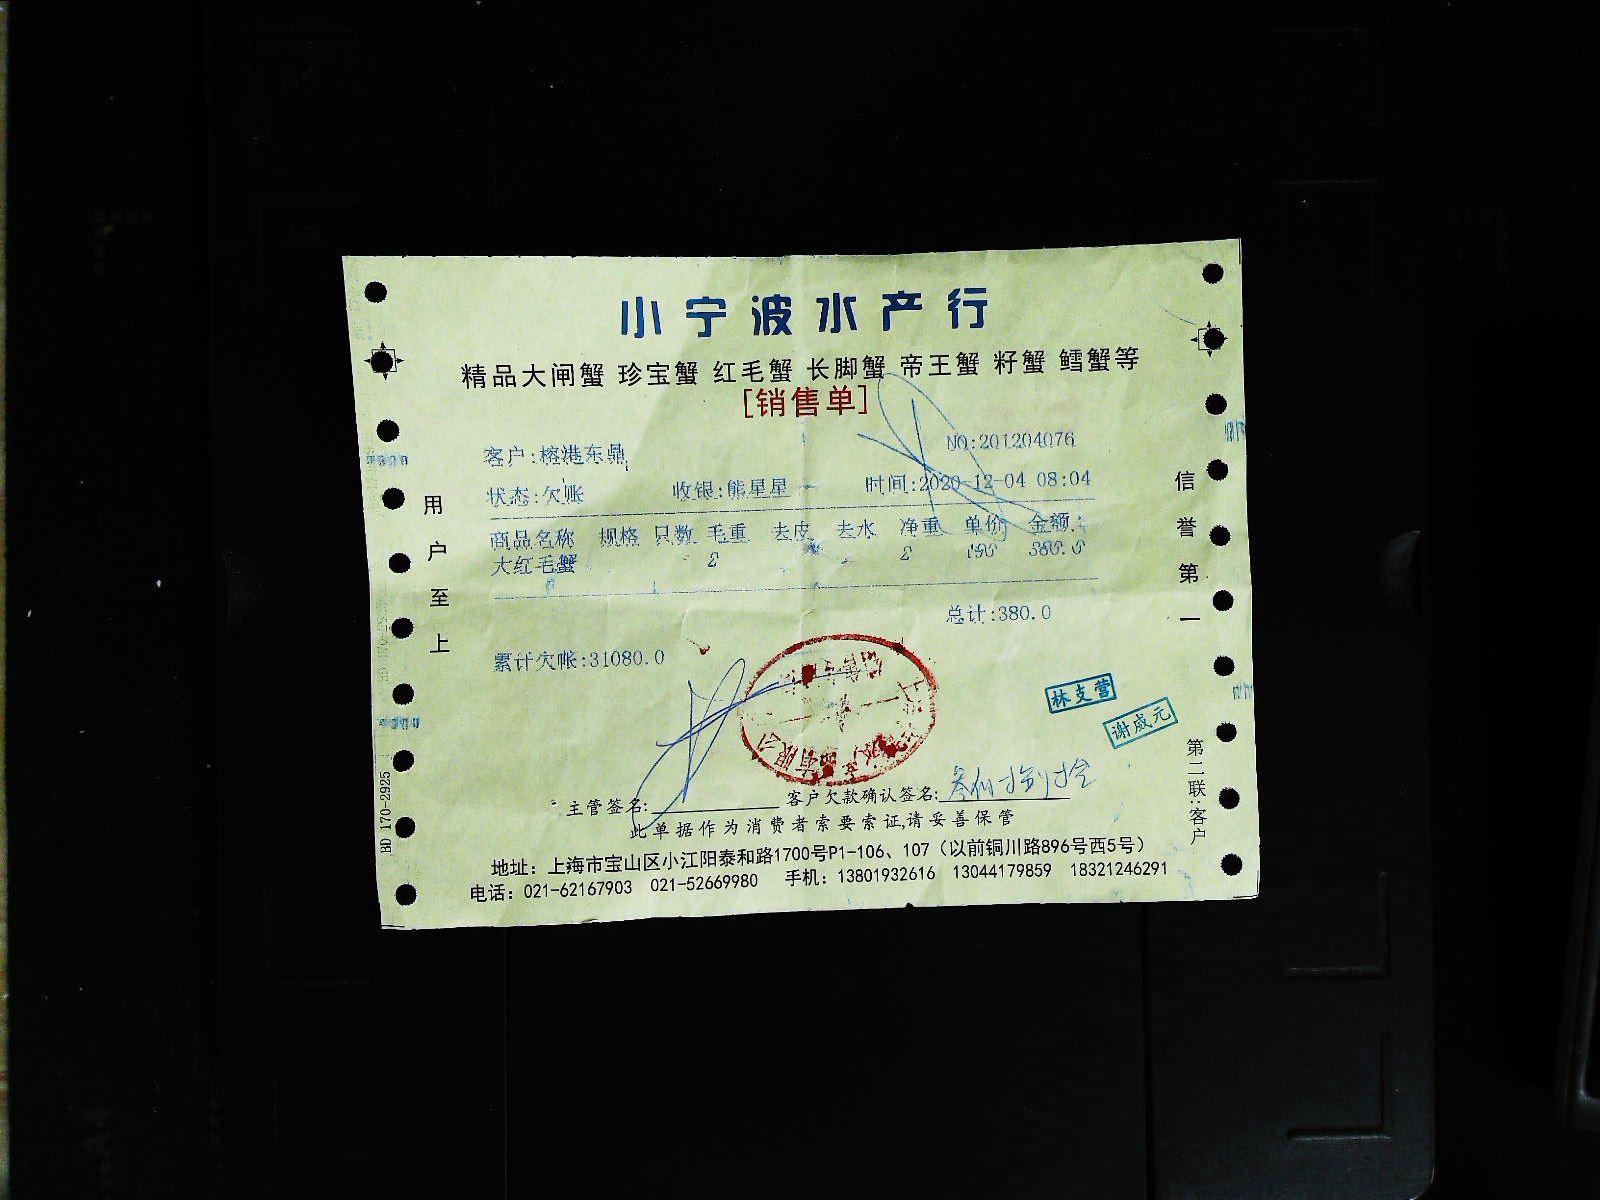 小宁波水产行
精品大闸蟹 珍宝蟹 红毛蟹 长脚蟹 帝王蟹 籽蟹 鳕蟹等
[销售单]
NO:201204076
客户:榕港东鼎
状态:欠账 收银:熊星星 时间:2020-12-04 08:04
商品名称 规格 只数 毛重 去皮 去水 净重 单价 金额
大红毛蟹 2 2 190 380.0
总计:380.0
累计欠帐:31080.0
林支营
谢威元
主管签名: 客户欠款确认签名:
此单据作为消费者索要索证,请妥善保管
地址：上海市宝山区小江阳泰和路1700号P1-106、107（以前铜川路896号西5号）
电话：021-62167903 021-52669980 手机：13801932616 13044179859 18321246291
用户至上
信誉第一
第二联:客户
BD 170-2925